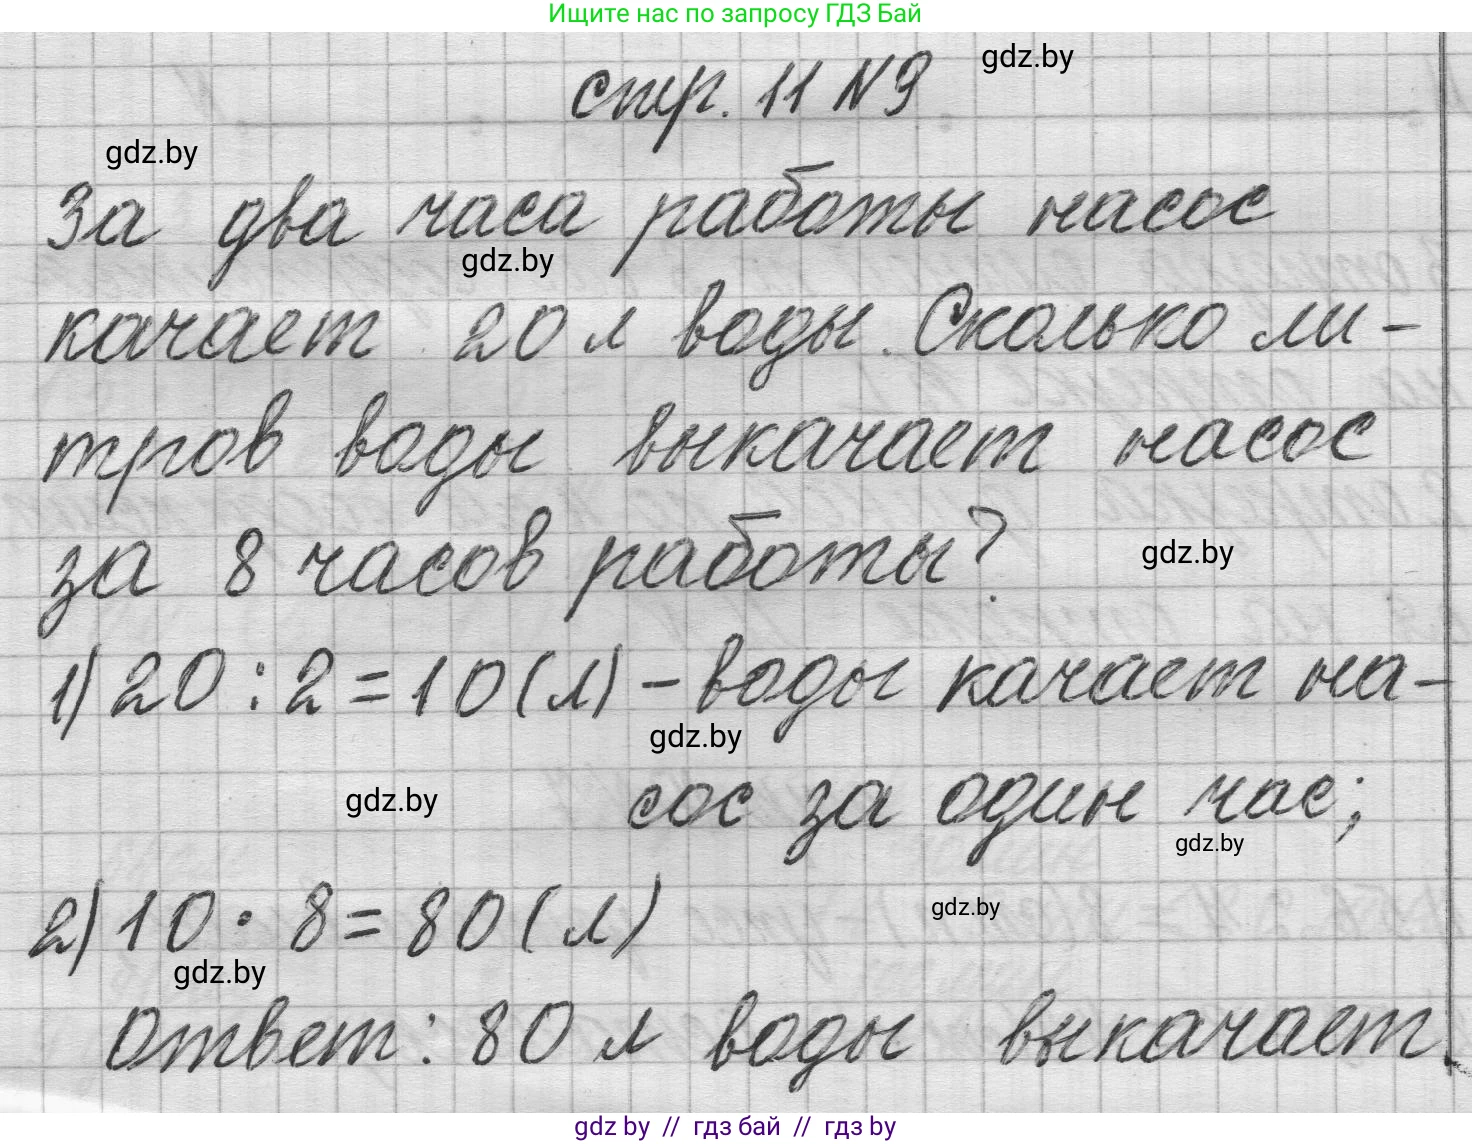 Ищите нас по запросу ГДЗ Бай
стр. 11 №9
gdz.by
gdz.by
За два часа работы насос
gdz.by
качает 20 л воды. Сколько ли-
тров воды выкачает насос
за 8 часов работы?
gdz.by
1) 20 : 2 = 10 (л) - воды качает на-
gdz.by
сос за один час;
gdz.by
gdz.by
2) 10 · 8 = 80 (л)
gdz.by
gdz.by
Ответ: 80 л воды выкачает.
gdz by // гдз бай // гдз by